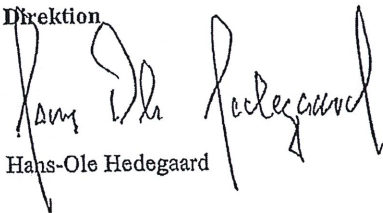 Direktion
Hans Ole Hedegaard
Hans-Ole Hedegaard